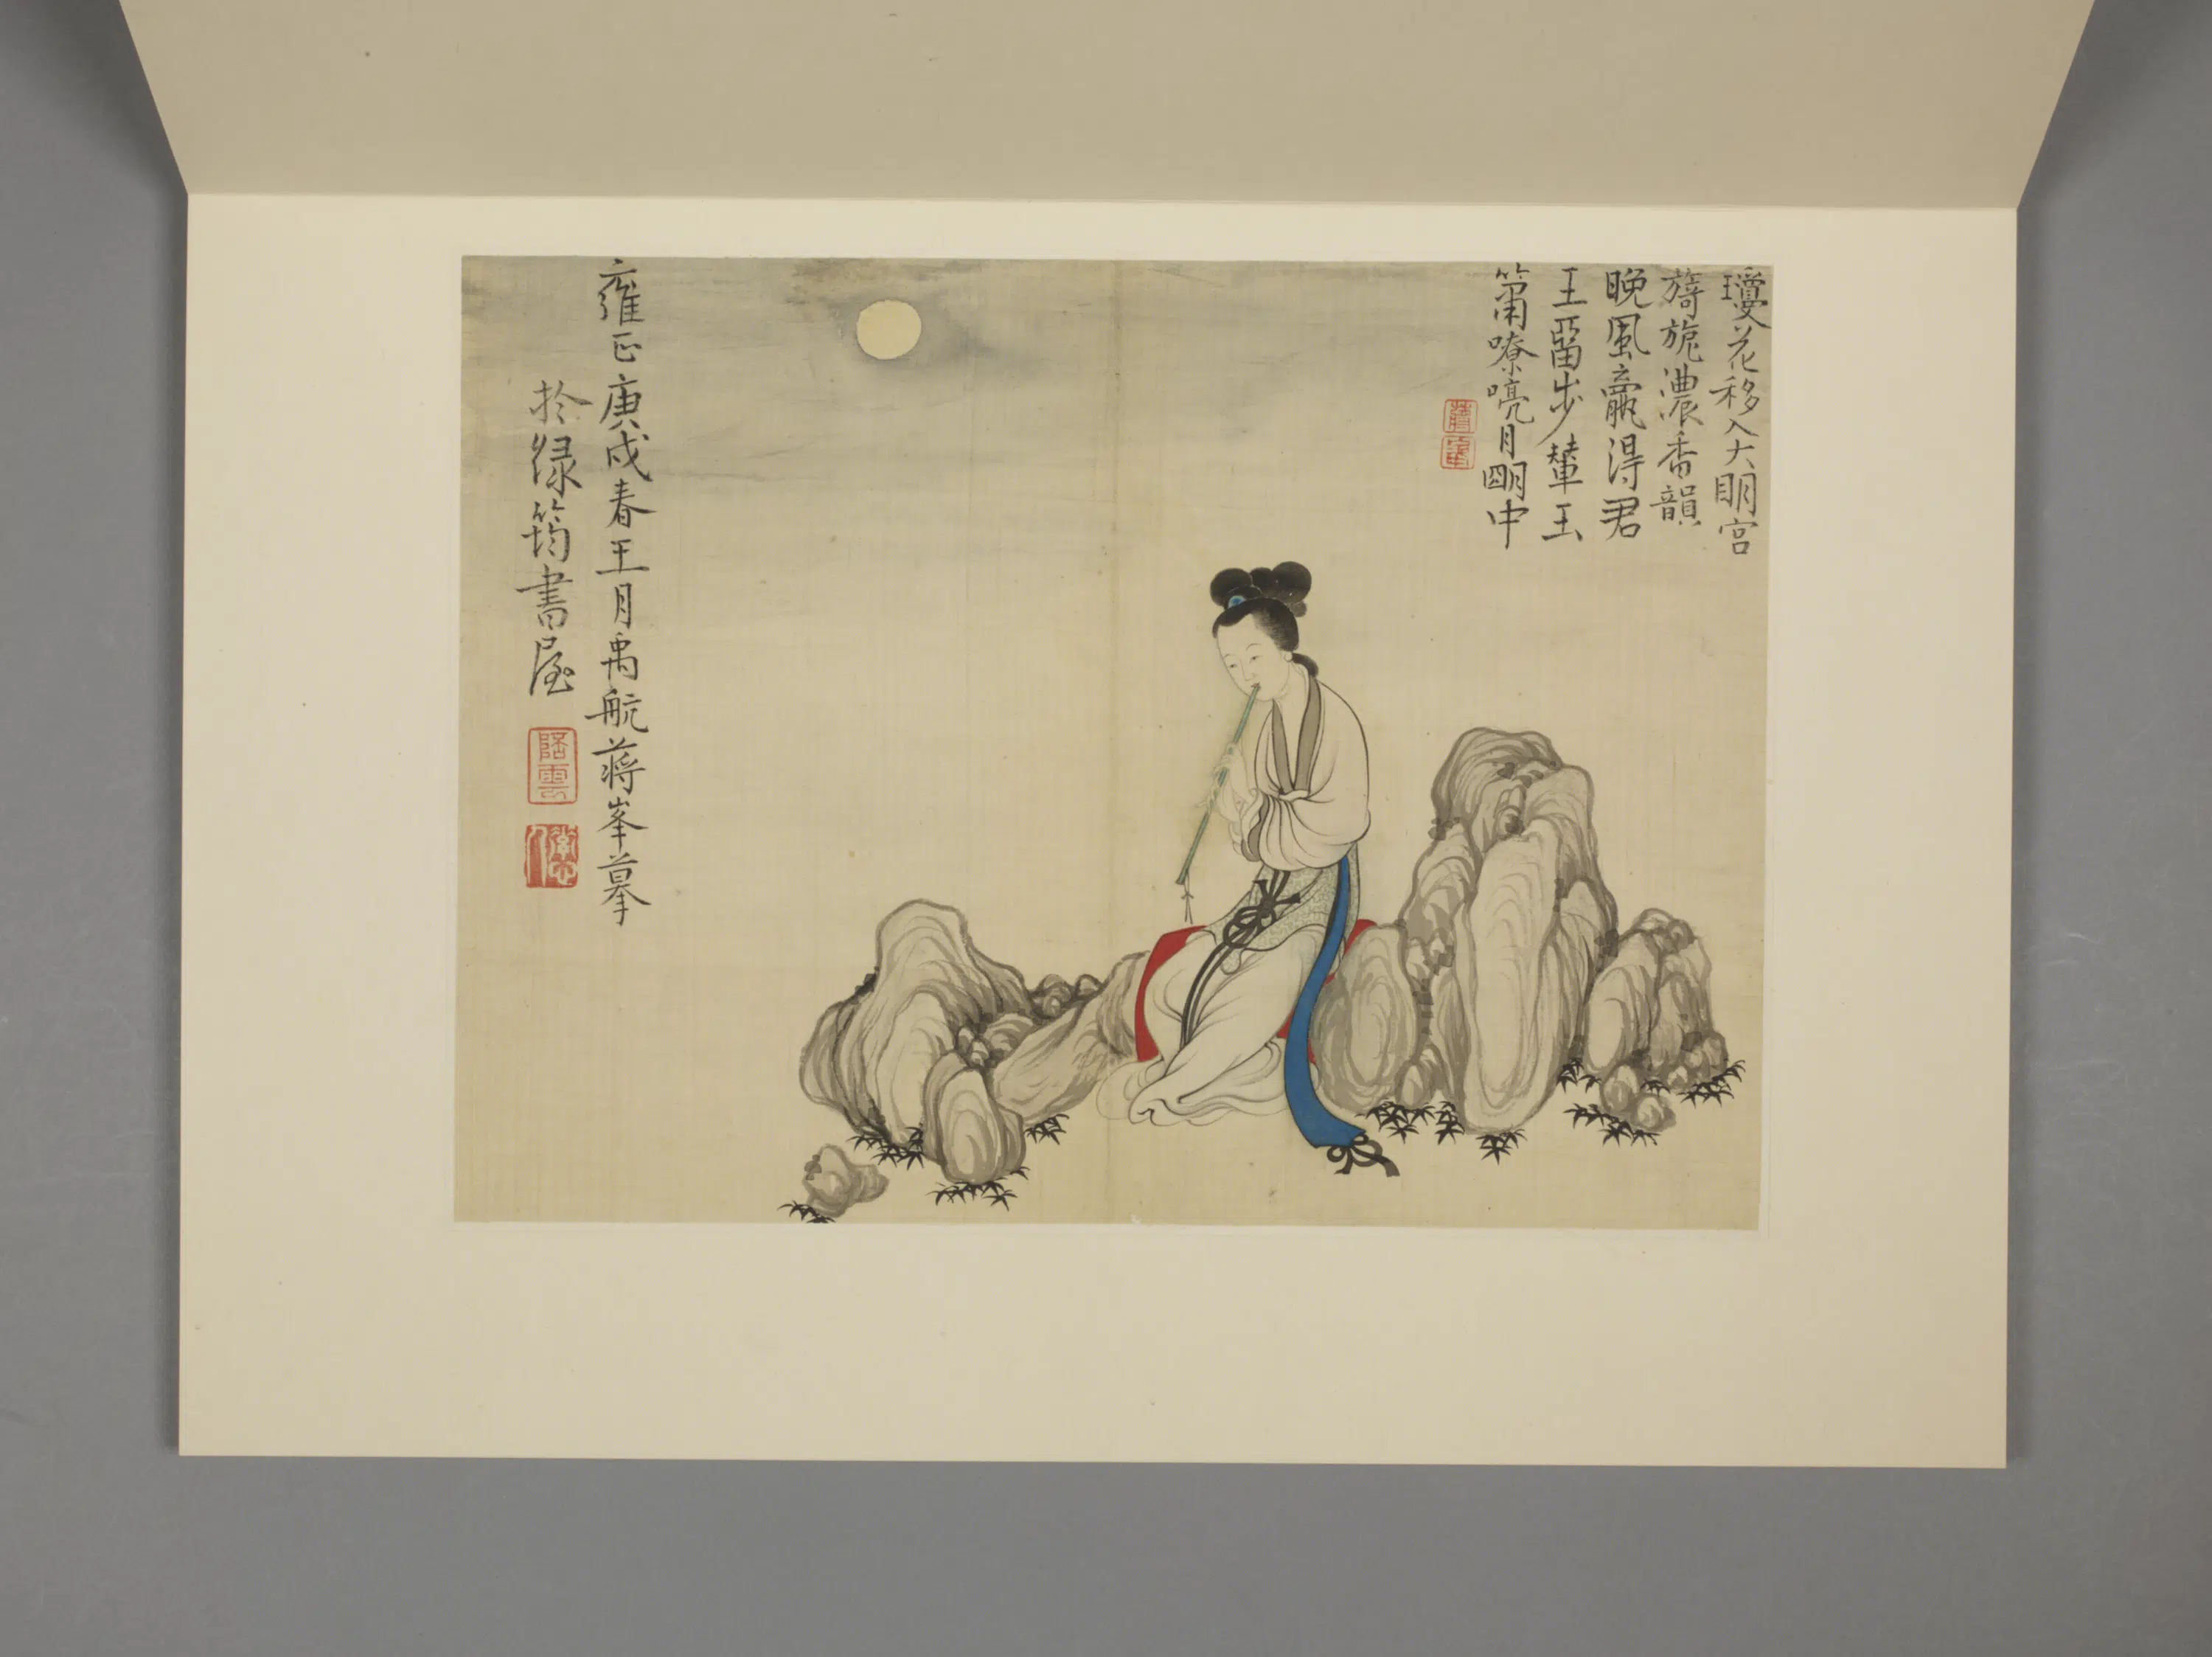 瓊花移入大明宮
旖旎濃香韻
晚風贏得君
王留步輦玉
簫嘹喨月明中
雍正庚戌春王月禹航蔣峯摹
於綠筠書屋